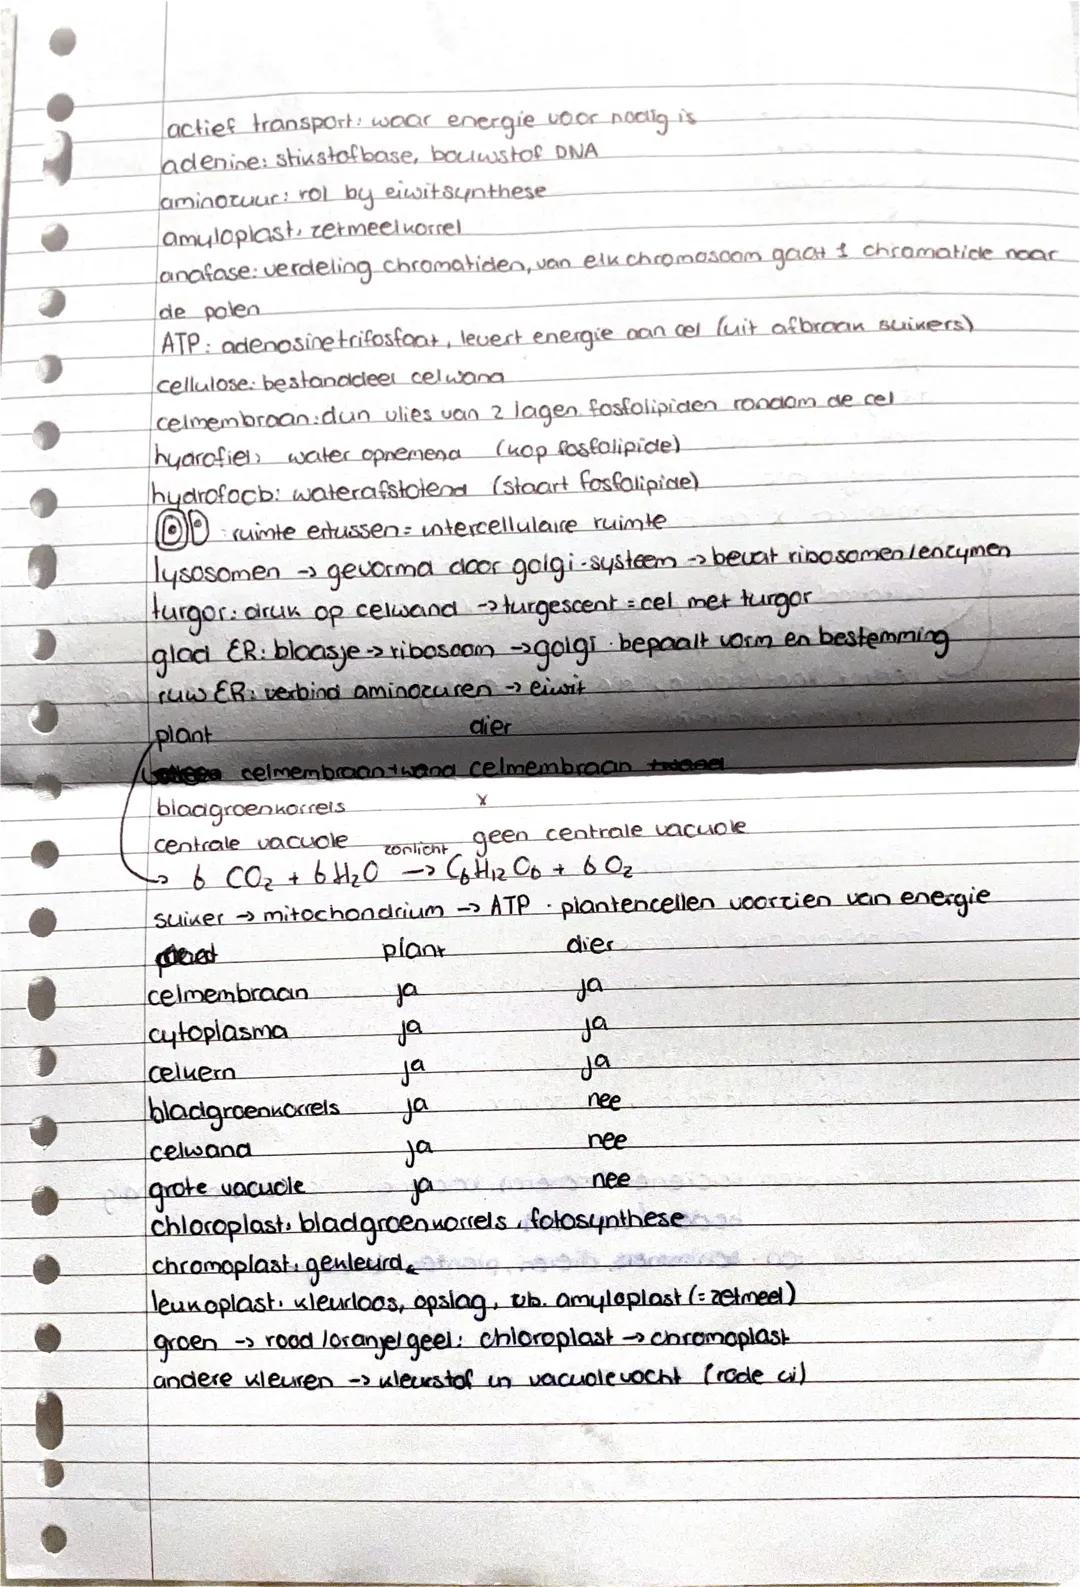 actief transport: waar energie voor nodig is
adenine: stikstofbase, bouwstof DNA
aminozuur: rol bij eiwitsynthese
amyloplast: zetmeelkorrel
anafase: verdeling chromatiden, van elk chromosoom gaat 1 chromatide naar
de polen
ATP: adenosinetrifosfaat, levert energie aan cel (uit afbraak suikers)
cellulose: bestanddeel celwand
celmembraan: dun vlies van 2 lagen fosfolipiden rondom de cel
hydrofiel: water opnemend (kop fosfolipide)
hydrofoob: waterafstotend (staart fosfolipide)
ruimte ertussen = intercellulaire ruimte
lysosomen -> gevormd door golgi-systeem -> bevat ribosomen/enzymen
turgor: druk op celwand -> turgescent = cel met turgor
glad ER: blaasje -> ribosoom -> golgi · bepaalt vorm en bestemming
ruw ER: verbind aminozuren -> eiwit
plant dier
celmembraan + wand celmembraan
bladgroenkorrels x
centrale vacuole geen centrale vacuole
zonlicht
-> 6 CO₂ + 6 H₂O -> C₆H₁₂O₆ + 6 O₂
suiker -> mitochondrium -> ATP · plantencellen voorzien van energie
plant dier
celmembraan ja ja
cytoplasma ja ja
celkern ja ja
bladgroenkorrels ja nee
celwand ja nee
grote vacuole ja nee
chloroplast: bladgroenkorrels, fotosynthese
chromoplast: gekleurd
leukoplast: kleurloos, opslag, vb. amyloplast (= zetmeel)
groen -> rood/oranje/geel: chloroplast -> chromoplast
andere kleuren -> kleurstof in vacuolevocht (rode ui)